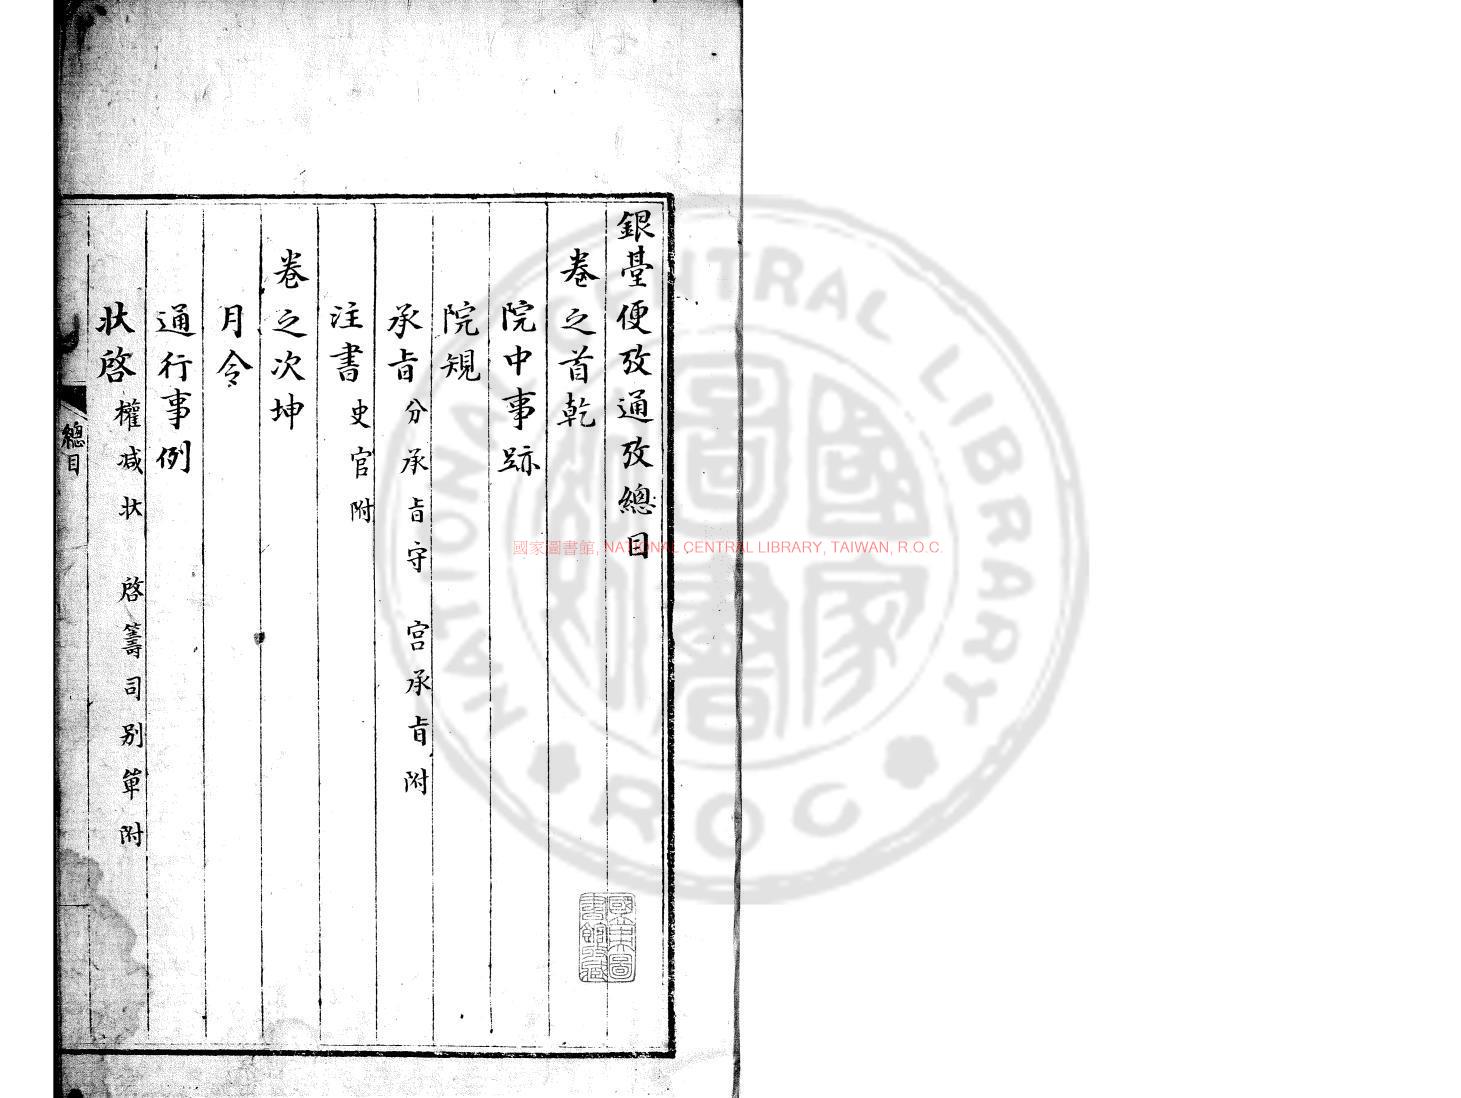 銀臺便攷通攷總目
卷之首乾
院中事跡
院規
承旨 分承旨守 宮承旨附
注書 史官附
卷之次坤
月令
通行事例
狀啓 權减狀 啓籌司別單附
總目
國家圖書館, NATIONAL CENTRAL LIBRARY, TAIWAN, R.O.C.
NATIONAL CENTRAL LIBRARY
ROC
國家圖書館
國立中央圖書館收藏